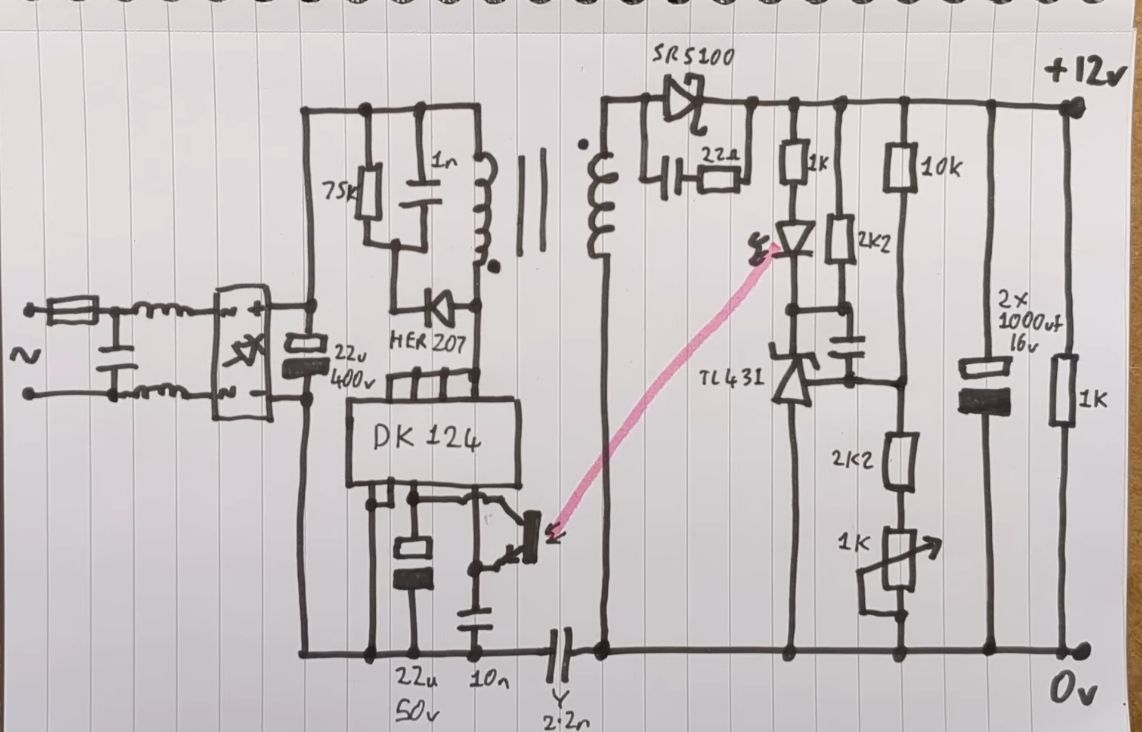 SR5100
+12v
1n
22Ω
75k
1k
10k
2k2
HER 207
2x
1000uf
16v
22u
400v
TL431
1K
DK 124
2K2
1K
22u
50v
10n
Y
2·2n
0v
~